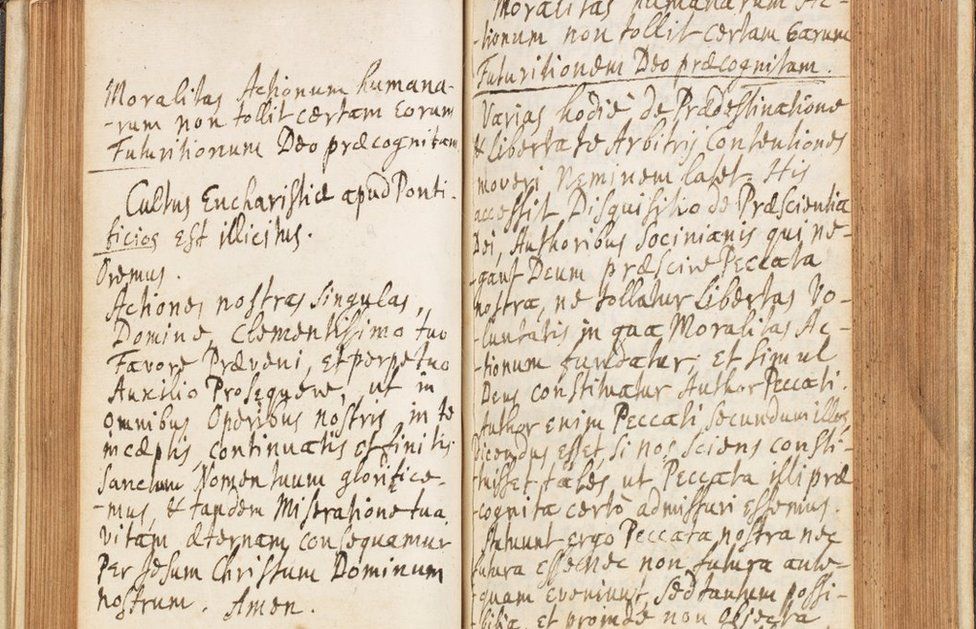 Moralitas Actionum humana-
-rum non tollit certam Eorum
Futuritionum Deo præcognitam
Cultus Eucharisticæ apud Ponti-
ficios est illicitus.
Oremus.
Actiones nostras singulas,
Domine, Clementissimo tuo
Favore Præveni, et perpetuo
Auxilio Prosequere, ut in
omnibus Operibus nostris in te
incæptis, continuatis et finitis
Sanctum Nomen tuum glorifice-
-mus, & tandem Miseratione tua
vitam æternam consequamur
Per Jesum Christum Dominum
nostrum. Amen.
Moralitas humanarum Ac-
-tionum non tollit certam Earum
Futuritionem Deo præcognitam.
Varias hodiè de Prædestinatione
& libertate Arbitrij Contentiones
moveri Neminem latet. His
accessit Disquisitio de Præscientia
Dei, Authoribus Socinianis qui ne-
-gant Deum præscire Peccata
nostra, ne tollatur libertas Vo-
-luntatis in qua Moralitas Ac-
-tionum fundatur; et simul
Deus constituatur Author Peccati.
Author enim Peccati, secundum illos,
Dicendus esset, si nos sciens consti-
-tuisset tales ut Peccata illi præ
-cognita certò admissuri essemus.
Statuunt ergo Peccata nostra nec
futura esse nec non futura ante-
-quam eveniunt, sed tantum possi-
-bilia, et proinde non objecta